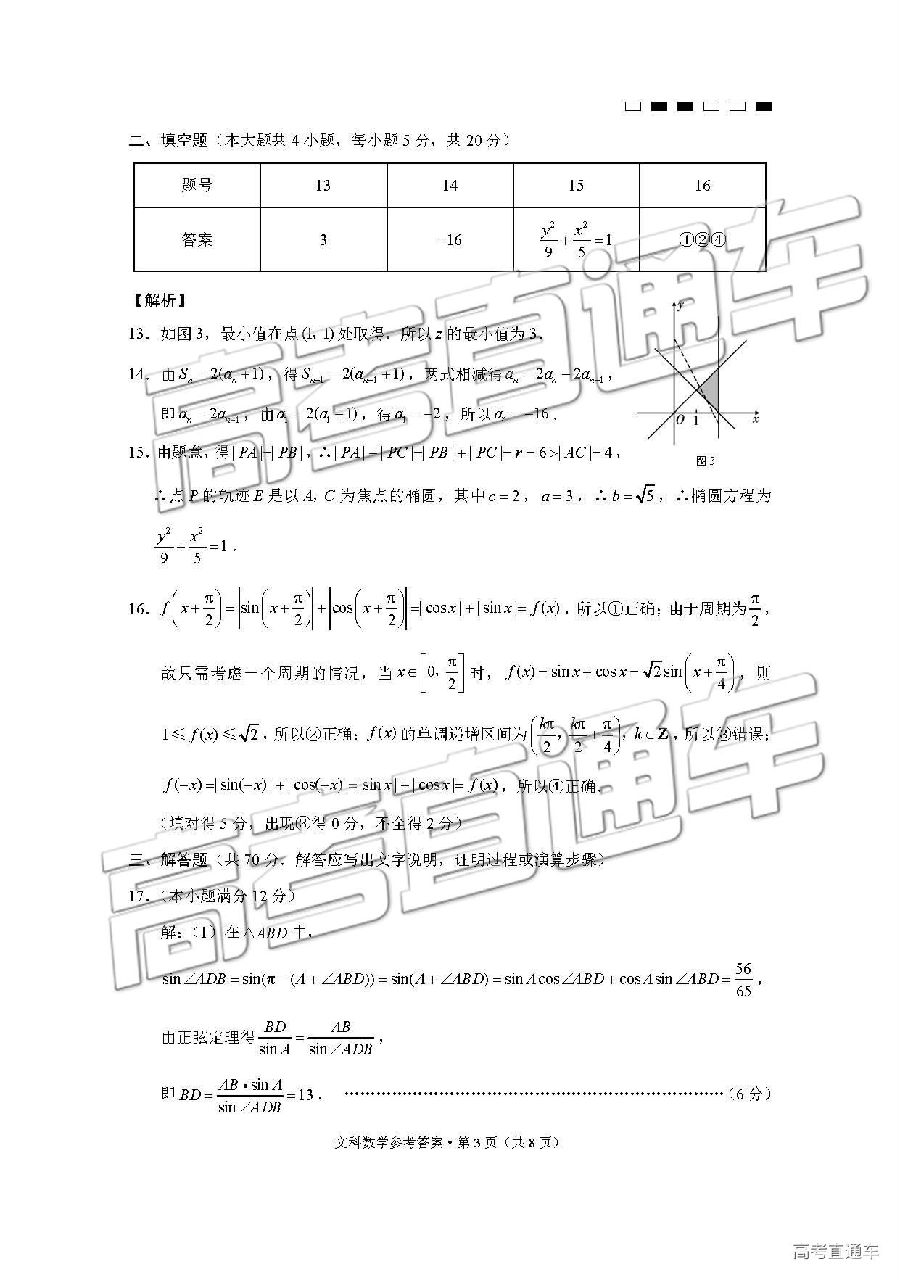 二、填空题（本大题共 4 小题，每小题 5 分，共 20 分）
题号 13 14 15 16
答案 3 -16 y²/9 + x²/5 = 1 ①②④
【解析】
13．如图 3，最小值在点 (1, 1) 处取得，所以 z 的最小值为 3．
14．由 Sₙ = 2(aₙ + 1)，得 Sₙ₋₁ = 2(aₙ₋₁ + 1)，两式相减得 aₙ = 2aₙ - 2aₙ₋₁，
即 aₙ = 2aₙ₋₁，由 a₁ = 2(a₁ + 1)，得 a₁ = -2，所以 a = -16．
y
O 1 x
图 3
15．由题意，得 |PA| = |PB|，∴ |PA| + |PC| = |PB| + |PC| = r = 6 > |AC| = 4，
∴点 P 的轨迹 E 是以 A，C 为焦点的椭圆，其中 c = 2，a = 3，∴ b = √5，∴椭圆方程为
y²/9 + x²/5 = 1．
16．f(x + π/2) = |sin(x + π/2)| + |cos(x + π/2)| = |cos x| + |sin x| = f(x)，所以①正确；由于周期为 π/2，
故只需考虑一个周期的情况，当 x∈[0, π/2] 时，f(x) = sin x + cos x = √2 sin(x + π/4)，则
1 ≤ f(x) ≤ √2，所以②正确；f(x) 的单调递增区间为 (kπ/2, kπ/2 + π/4)，k∈Z，所以③错误；
f(-x) = |sin(-x)| + |cos(-x)| = |sin x| + |cos x| = f(x)，所以④正确．
（填对得 5 分，出现③得 0 分，不全得 2 分）
三、解答题（共 70 分．解答应写出文字说明，证明过程或演算步骤）
17．（本小题满分 12 分）
解：（1）在△ABD 中，
sin∠ADB = sin(π - (A + ∠ABD)) = sin(A + ∠ABD) = sin A cos∠ABD + cos A sin∠ABD = 56/65，
由正弦定理得 BD/sin A = AB/sin∠ADB，
即 BD = AB•sin A/sin∠ADB = 13．……………………………………………………（6 分）
文科数学参考答案·第 3 页（共 8 页）
高考直通车
高考直通车
高考直通车